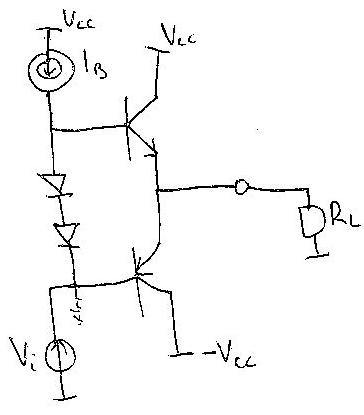 Vcc
IB
Vcc
RL
Vi
-Vcc